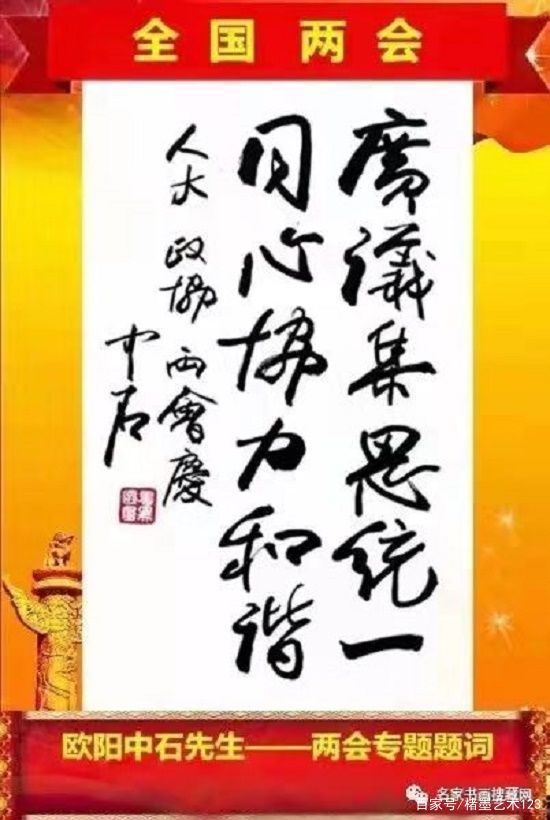 全国 两会
廣議集思統一
同心協力和谐
人大 政協 两會慶
中石
欧阳中石先生——两会专题题词
名家书画搜藏网
百家号/楮墨艺术123